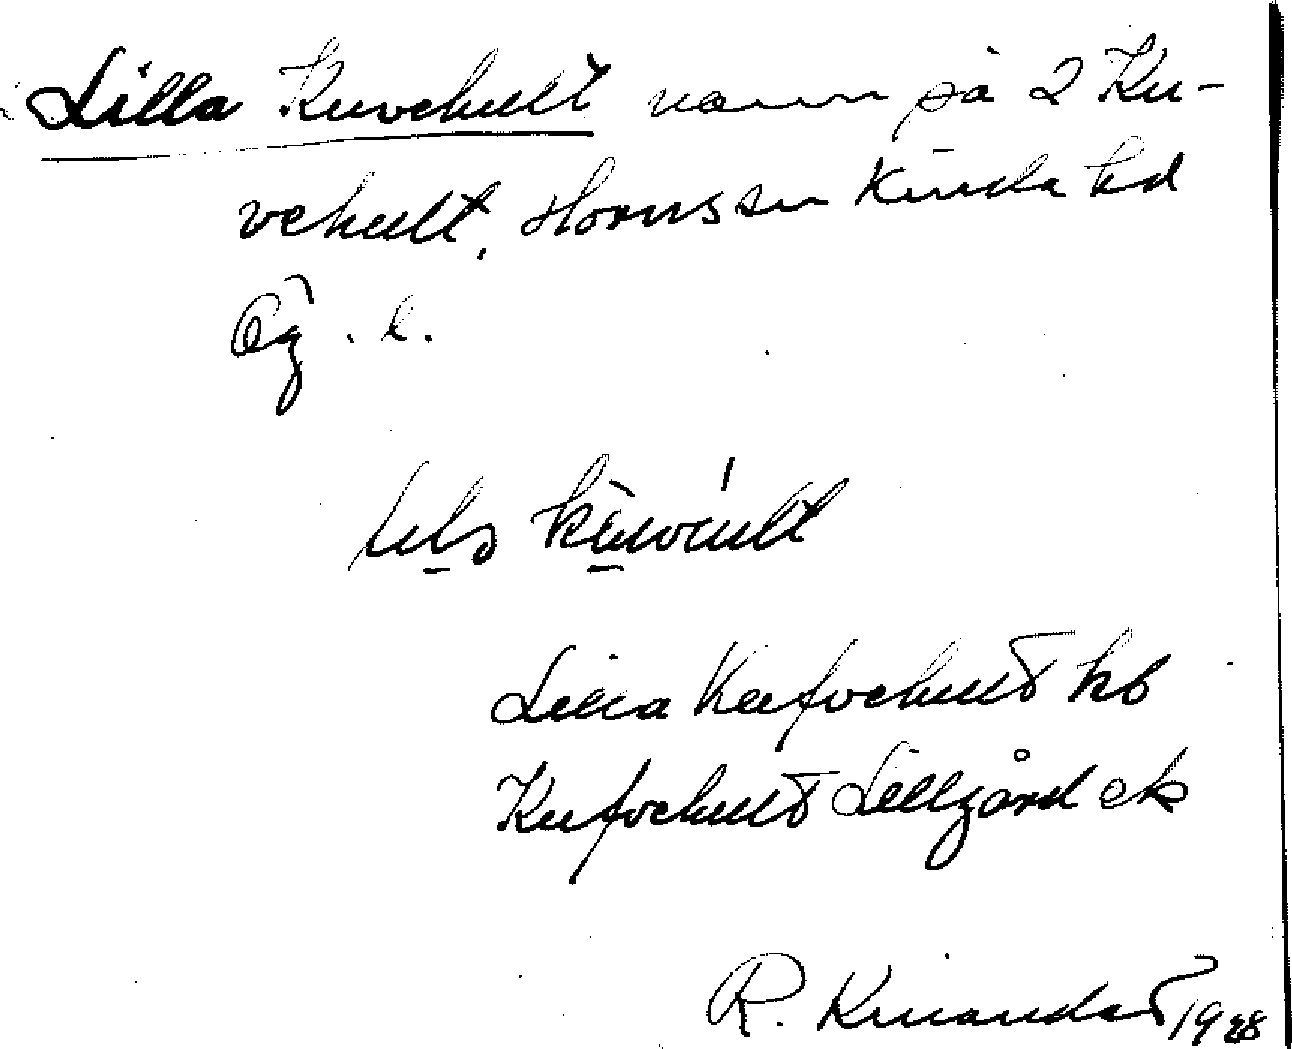 Lilla Kuvehult namn på 2 Ku-
vehult, Horns sn Kinda hd
Ög. l.
Lilla Kufvehult kb
Kufvehult Lillgård ek
R. Kinander 1928